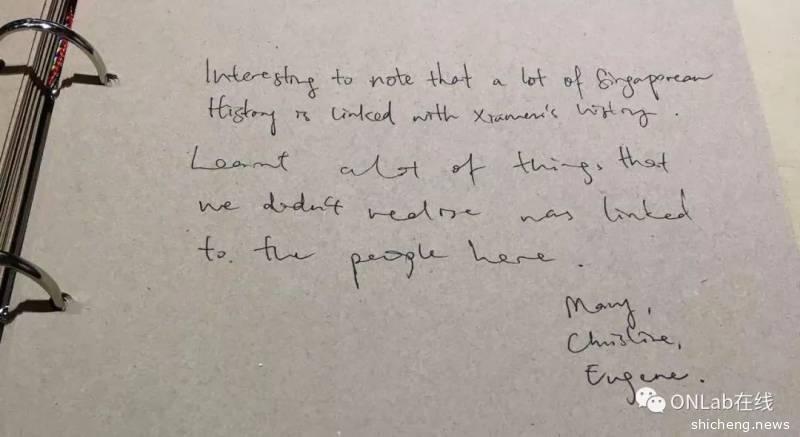 Interesting to note that a lot of Singaporean
History is linked with Xiamen's history.
Learnt alot of things that
we didn't realise was linked
to the people here.
Mary,
Christine,
Eugene.
ONLab在线
shicheng.news